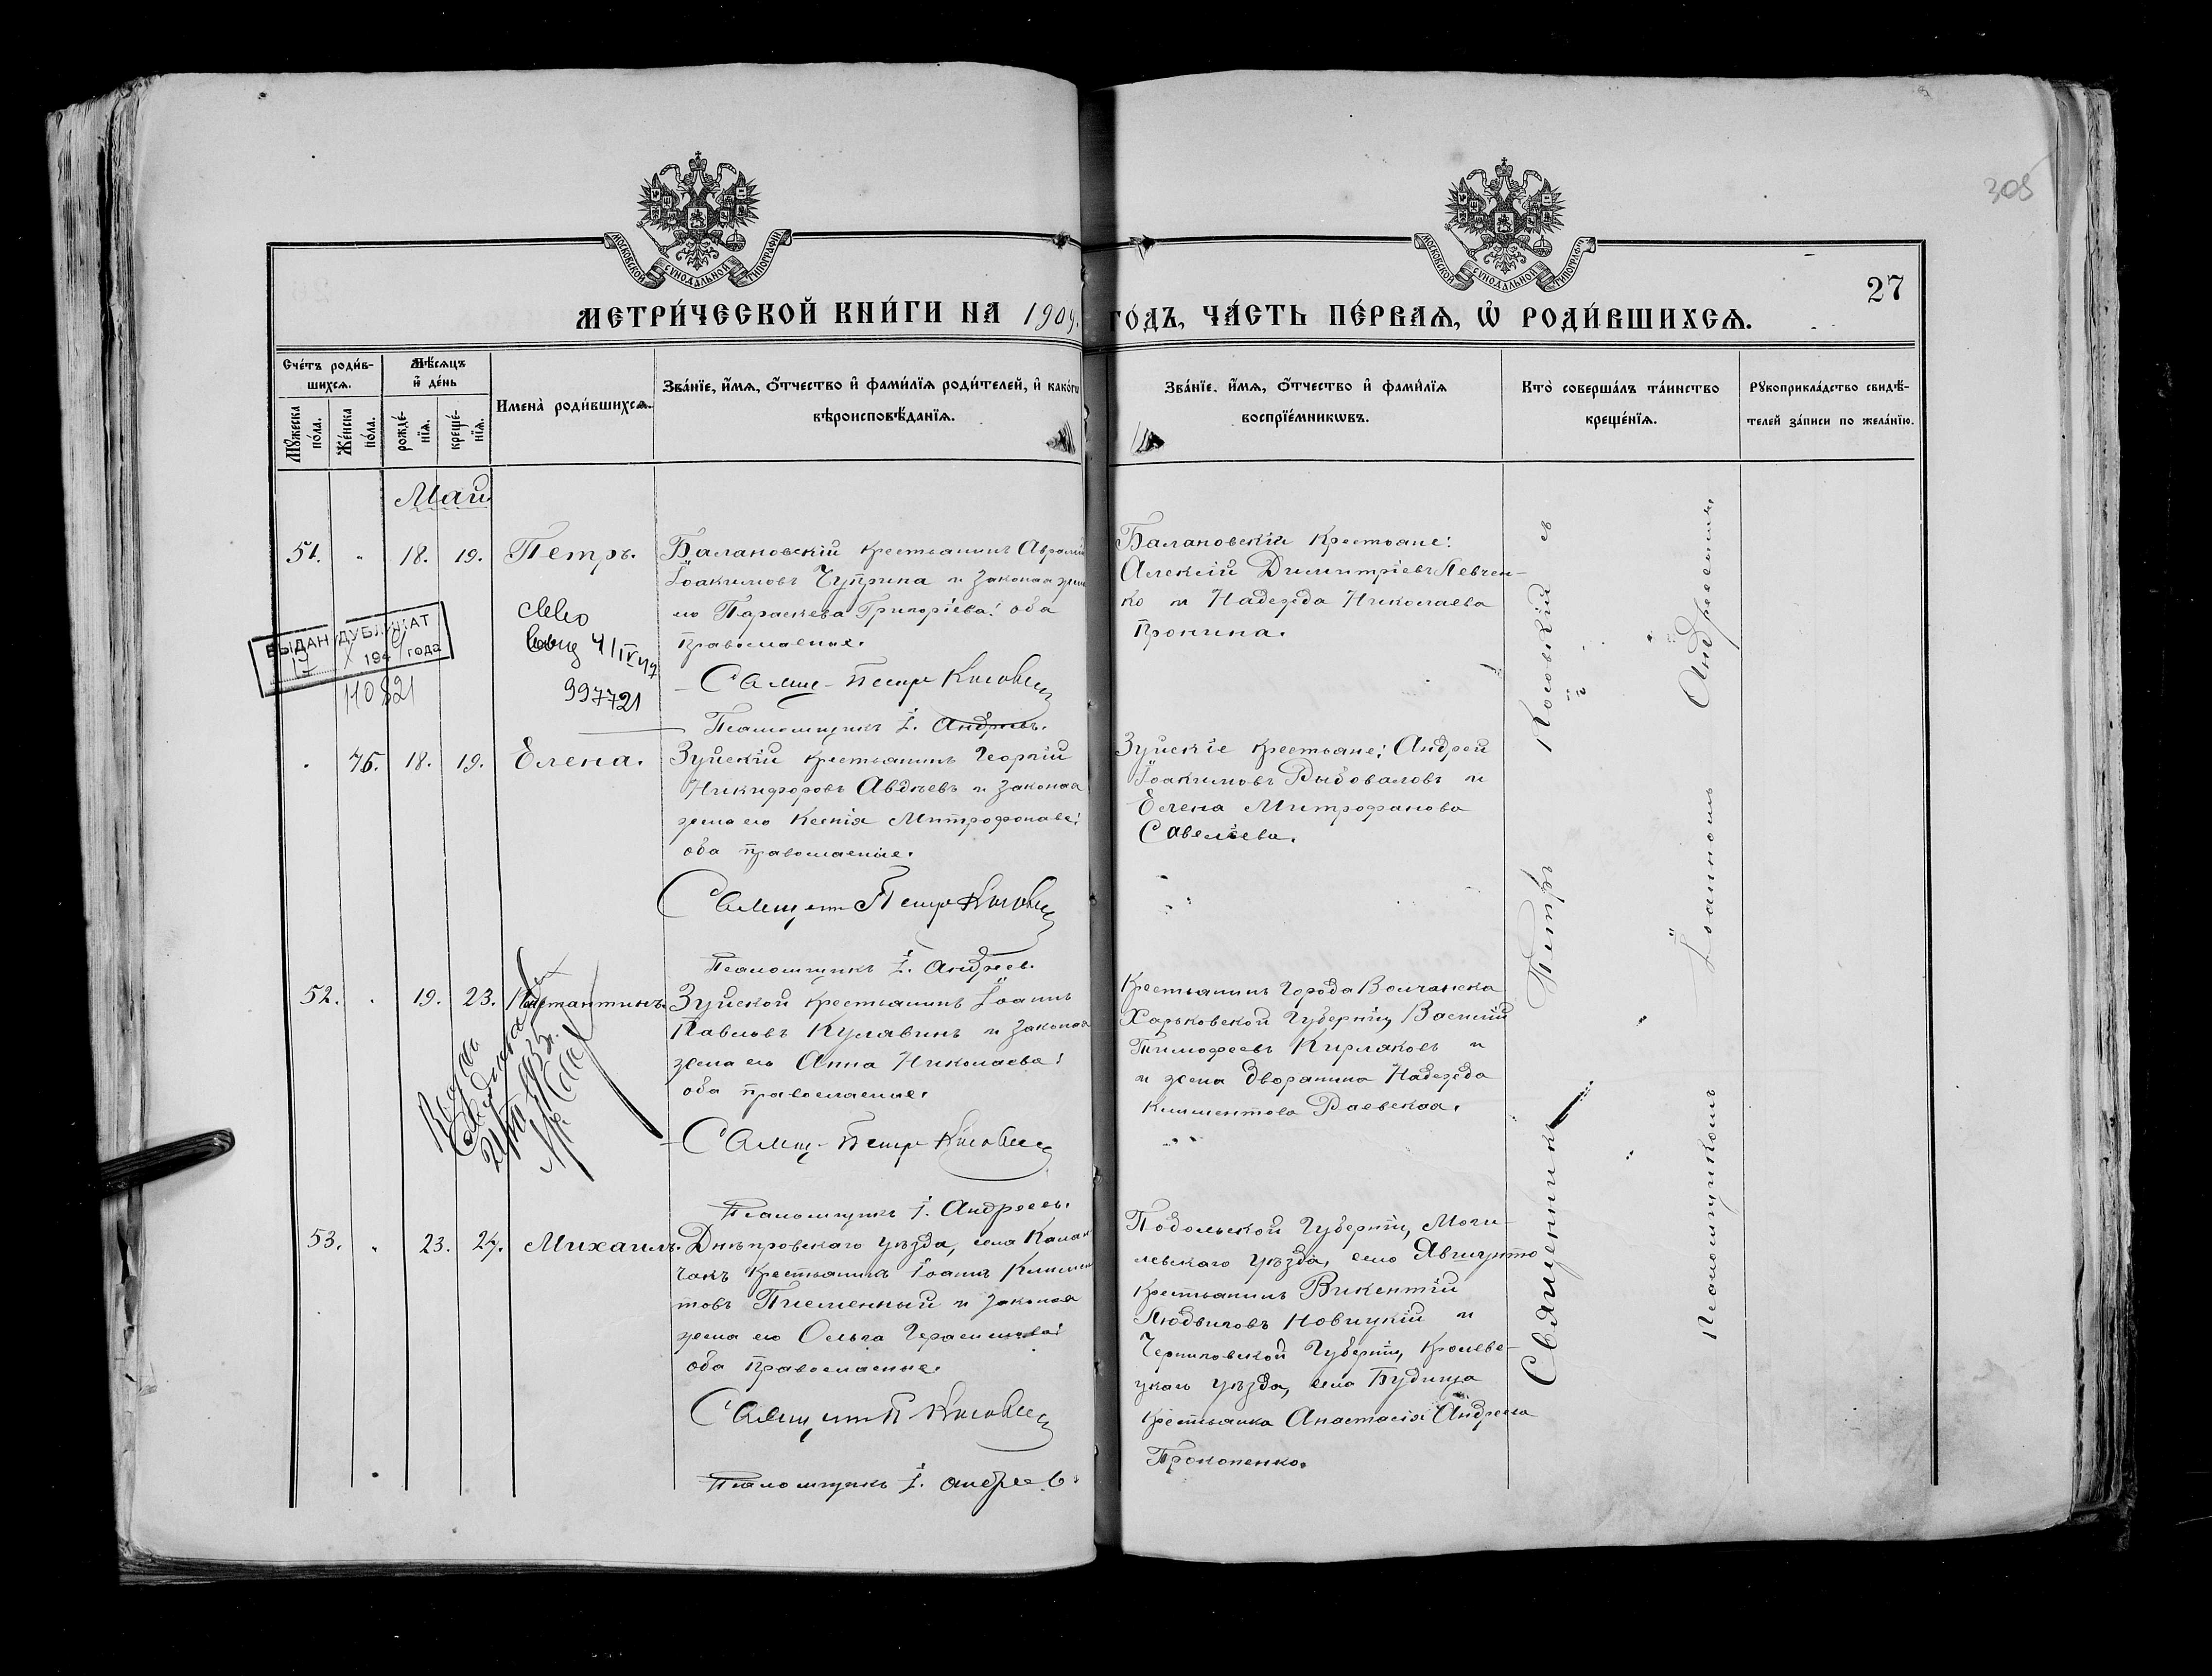 305
МОСКОВСКОЙ СѴНОДАЛЬНОЙ ТИПОГРАФІИ
МОСКОВСКОЙ СѴНОДАЛЬНОЙ ТИПОГРАФІИ
27
МЕТРИ́ЧЕСКОЙ КНИ́ГИ НА 1909 ГО́ДЪ, ЧА́СТЬ ПЕ́РВАѦ, Ѡ҆ РОДИ́ВШИХСѦ.
Сче́тъ роди́в-
шихсѧ.
Мꙋ́жеска
по́ла.
Же́нска
по́ла.
Мѣ́сѧцъ
и҆ де́нь
рожде́-
нїѧ.
креще́-
нїѧ.
Имена̀ роди́вшихсѧ.
Зва́нїе, и҆́мѧ, ѻ҆́тчество и҆ фами́лїѧ роди́телей, и҆ како́гѡ
вѣроисповѣ́данїѧ.
Зва́нїе, и҆́мѧ, ѻ҆́тчество и҆ фами́лїѧ
воспрїе́мникѡвъ.
Кто̀ соверша́лъ та́инство
креще́нїѧ.
Рꙋкоприкла́дство свидѣ́-
телей за́писи по жела́нїю.
Май
51. " 18. 19. Петръ.
Балановскій крестьянинъ Аврамій
Іоакимовъ Чуприна и законная жена
его Параскева Григоріева: оба
православные.
Свящ. Петръ
Псаломщикъ І. Андреевъ.
Балановскіи Крестьане:
Алексій Димитріевъ Левчен-
ко и Надежда Николаева
Пронина.
ВЫДАН ДУБЛИКАТ
17 X 194 года
110821
4/IV 47
997721
75. 18. 19. Елена.
Зуйскій крестьянинъ Георгій
Никифоровъ Авдѣевъ и законная
жена его Ксенія Митрофанова:
оба православные.
Священ Петръ
Псаломщикъ І. Андреев.
Зуйскіе крестьяне: Андрей
Іоакимовъ Рыбоваловъ и
Елена Митрофанова
Савельева.
52. " 19. 23. Константинъ.
Зуйской крестьянинъ Іоаннъ
Павловъ Кулявинъ и законная
жена его Анна Николаева:
оба православные.
Свящ. Петръ
Псаломщикъ І. Андреевъ.
Крестьянинъ города Волчанска
Харьковской Губерніи Василій
Тимофеевъ Кирляковъ и
и жена дворянина Надежда
Климентова Раевская.
53. " 23. 24. Михаилъ.
Днѣпровскаго уѣзда, села Калан-
чакъ Крестьянинъ Іоаннъ Климен-
товъ Племенный и законная
жена его Ольга Герасимова:
оба Православные.
Священ П
Псаломщикъ І. Андреевъ.
Подольской Губерніи, Моги-
левскаго уѣзда, село
крестьянинъ Викентій
Людвиговъ Новицкій и
Черниговской Губерніи, Кролеве-
цкаго уѣзда, села Будища
крестьянка Анастасія Андреева
Прокопенко.
Священникъ Петръ съ
Псаломщикомъ Іоанномъ Андреевымъ